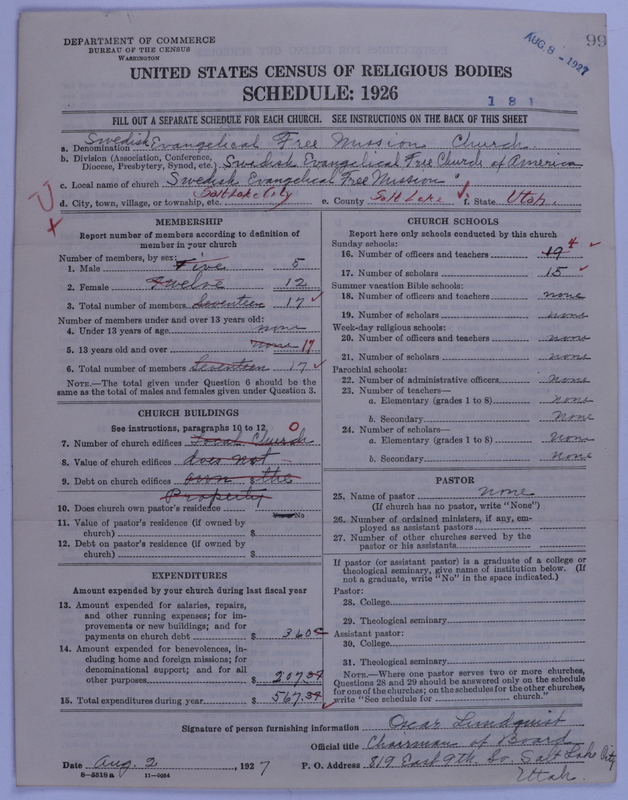 DEPARTMENT OF COMMERCE
BUREAU OF THE CENSUS
WASHINGTON
AUG. 8 - 1927
99
UNITED STATES CENSUS OF RELIGIOUS BODIES
SCHEDULE: 1926
181
FILL OUT A SEPARATE SCHEDULE FOR EACH CHURCH. SEE INSTRUCTIONS ON THE BACK OF THIS SHEET
a. Denomination Swedish Evangelical Free Mission Church
b. Division (Association, Conference, Diocese, Presbytery, Synod, etc.) Swedish Evangelical Free Church of America
c. Local name of church Swedish Evangelical Free Mission
d. City, town, village, or township, etc. Salt Lake City e. County Salt Lake f. State Utah.
MEMBERSHIP
Report number of members according to definition of
member in your church
Number of members, by sex:
1. Male Five 5
2. Female Twelve 12
3. Total number of members Seventeen 17
Number of members under and over 13 years old:
4. Under 13 years of age none
5. 13 years old and over none 17
6. Total number of members Seventeen 17
NOTE.—The total given under Question 6 should be the
same as the total of males and females given under Question 3.
CHURCH BUILDINGS
See instructions, paragraphs 10 to 12 0
7. Number of church edifices Local Church
8. Value of church edifices does not
9. Debt on church edifices own the
Property
10. Does church own pastor's residence No
11. Value of pastor's residence (if owned by
church) $
12. Debt on pastor's residence (if owned by
church) $
EXPENDITURES
Amount expended by your church during last fiscal year
13. Amount expended for salaries, repairs,
and other running expenses; for im-
provements or new buildings; and for
payments on church debt $ 360
14. Amount expended for benevolences, in-
cluding home and foreign missions; for
denominational support; and for all
other purposes $ 207.34
15. Total expenditures during year $ 567.34
CHURCH SCHOOLS
Report here only schools conducted by this church
Sunday schools:
16. Number of officers and teachers 4
17. Number of scholars 15
Summer vacation Bible schools:
18. Number of officers and teachers none
19. Number of scholars none
Week-day religious schools:
20. Number of officers and teachers none
21. Number of scholars none
Parochial schools:
22. Number of administrative officers None
23. Number of teachers—
a. Elementary (grades 1 to 8) none
b. Secondary None
24. Number of scholars—
a. Elementary (grades 1 to 8) None
b. Secondary None
PASTOR
25. Name of pastor none
(If church has no pastor, write "None")
26. Number of ordained ministers, if any, em-
ployed as assistant pastors
27. Number of other churches served by the
pastor or his assistants
If pastor (or assistant pastor) is a graduate of a college or
theological seminary, give name of institution below. (If
not a graduate, write "No" in the space indicated.)
Pastor:
28. College
29. Theological seminary
Assistant pastor:
30. College
31. Theological seminary
NOTE.—Where one pastor serves two or more churches,
Questions 28 and 29 should be answered only on the schedule
for one of the churches; on the schedules for the other churches,
write "See schedule for church."
Signature of person furnishing information Oscar Lundquist
Official title Chairman of Board
Date Aug. 2, 1927 P. O. Address 819 East 9th So. Salt Lake City
Utah.
8-5518a 11-9084